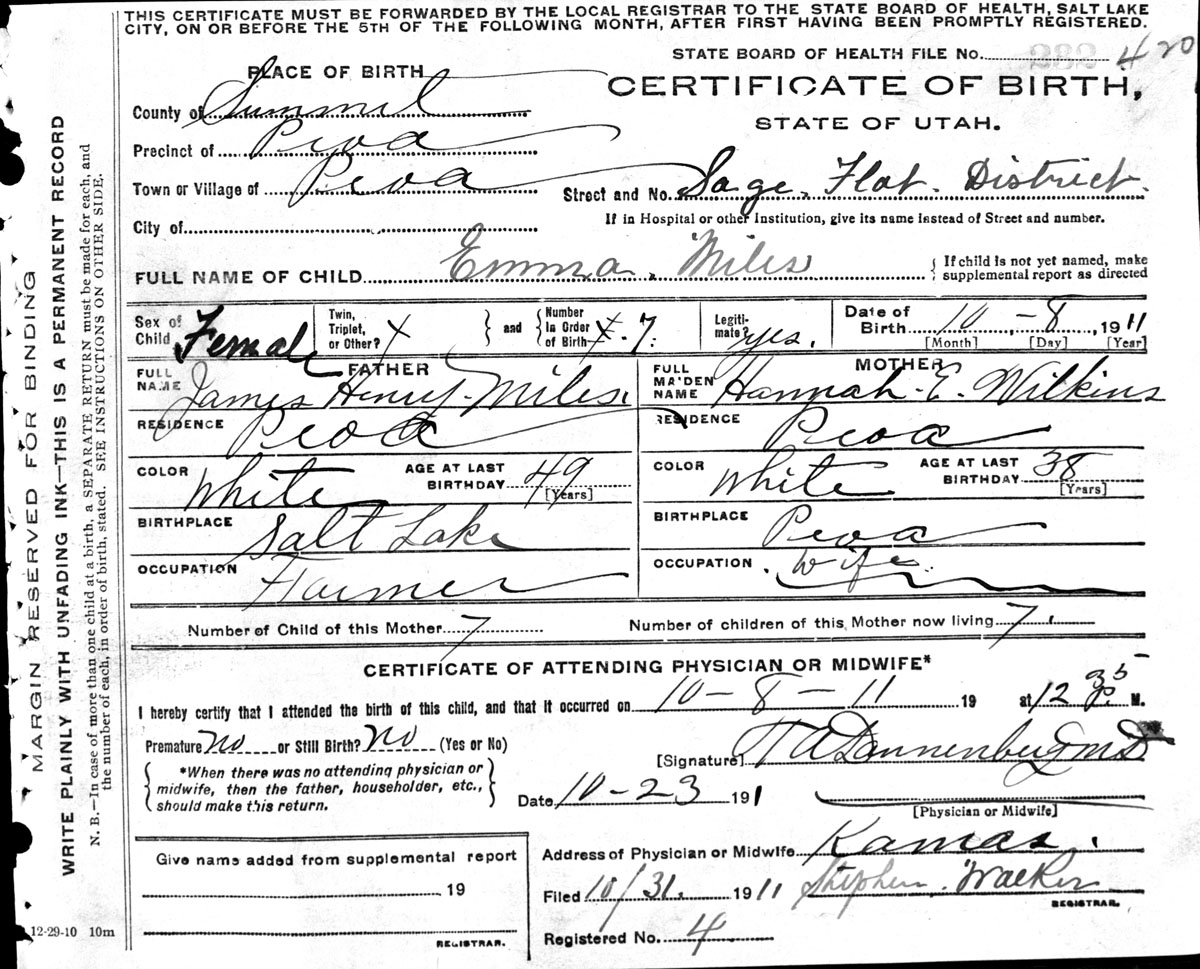 THIS CERTIFICATE MUST BE FORWARDED BY THE LOCAL REGISTRAR TO THE STATE BOARD OF HEALTH, SALT LAKE
CITY, ON OR BEFORE THE 5TH OF THE FOLLOWING MONTH, AFTER FIRST HAVING BEEN PROMPTLY REGISTERED.
STATE BOARD OF HEALTH FILE No. 420
PLACE OF BIRTH
CERTIFICATE OF BIRTH,
STATE OF UTAH.
County of Summit
Precinct of Peoa
Town or Village of Peoa
Street and No. Sage Flat District
If in Hospital or other Institution, give its name instead of Street and number.
City of
FULL NAME OF CHILD Emma Miles
{ If child is not yet named, make supplemental report as directed
Sex of Child Female
Twin, Triplet, or Other? X } and { Number in Order of Birth 7.
Legitimate? yes.
Date of Birth 10 - 8, 1911
[Month] [Day] [Year]
FATHER
FULL NAME James Henry Miles.
RESIDENCE Peoa
COLOR White AGE AT LAST BIRTHDAY 49 [Years]
BIRTHPLACE Salt Lake
OCCUPATION Farmer
MOTHER
FULL MAIDEN NAME Hannah E. Wilkins
RESIDENCE Peoa
COLOR White AGE AT LAST BIRTHDAY 38 [Years]
BIRTHPLACE Peoa
OCCUPATION Wife.
Number of Child of this Mother 7 Number of children of this Mother now living 7.
CERTIFICATE OF ATTENDING PHYSICIAN OR MIDWIFE*
I hereby certify that I attended the birth of this child, and that it occurred on 10-8-11 19 at 12 35 P. M.
Premature no or Still Birth? no (Yes or No)
[Signature] Dannenberg MD
[Physician or Midwife]
{ *When there was no attending physician or
midwife, then the father, householder, etc.,
should make this return. }
Date 10-23 1911
Address of Physician or Midwife Kamas.
Filed 10/31. 1911 Stephen Walker
REGISTRAR.
Registered No. 4
Give name added from supplemental report
19
REGISTRAR.
12-29-10 10m
MARGIN RESERVED FOR BINDING
WRITE PLAINLY WITH UNFADING INK—THIS IS A PERMANENT RECORD
N. B.—In case of more than one child at a birth, a SEPARATE RETURN must be made for each, and
the number of each, in order of birth, stated. SEE INSTRUCTIONS ON OTHER SIDE.